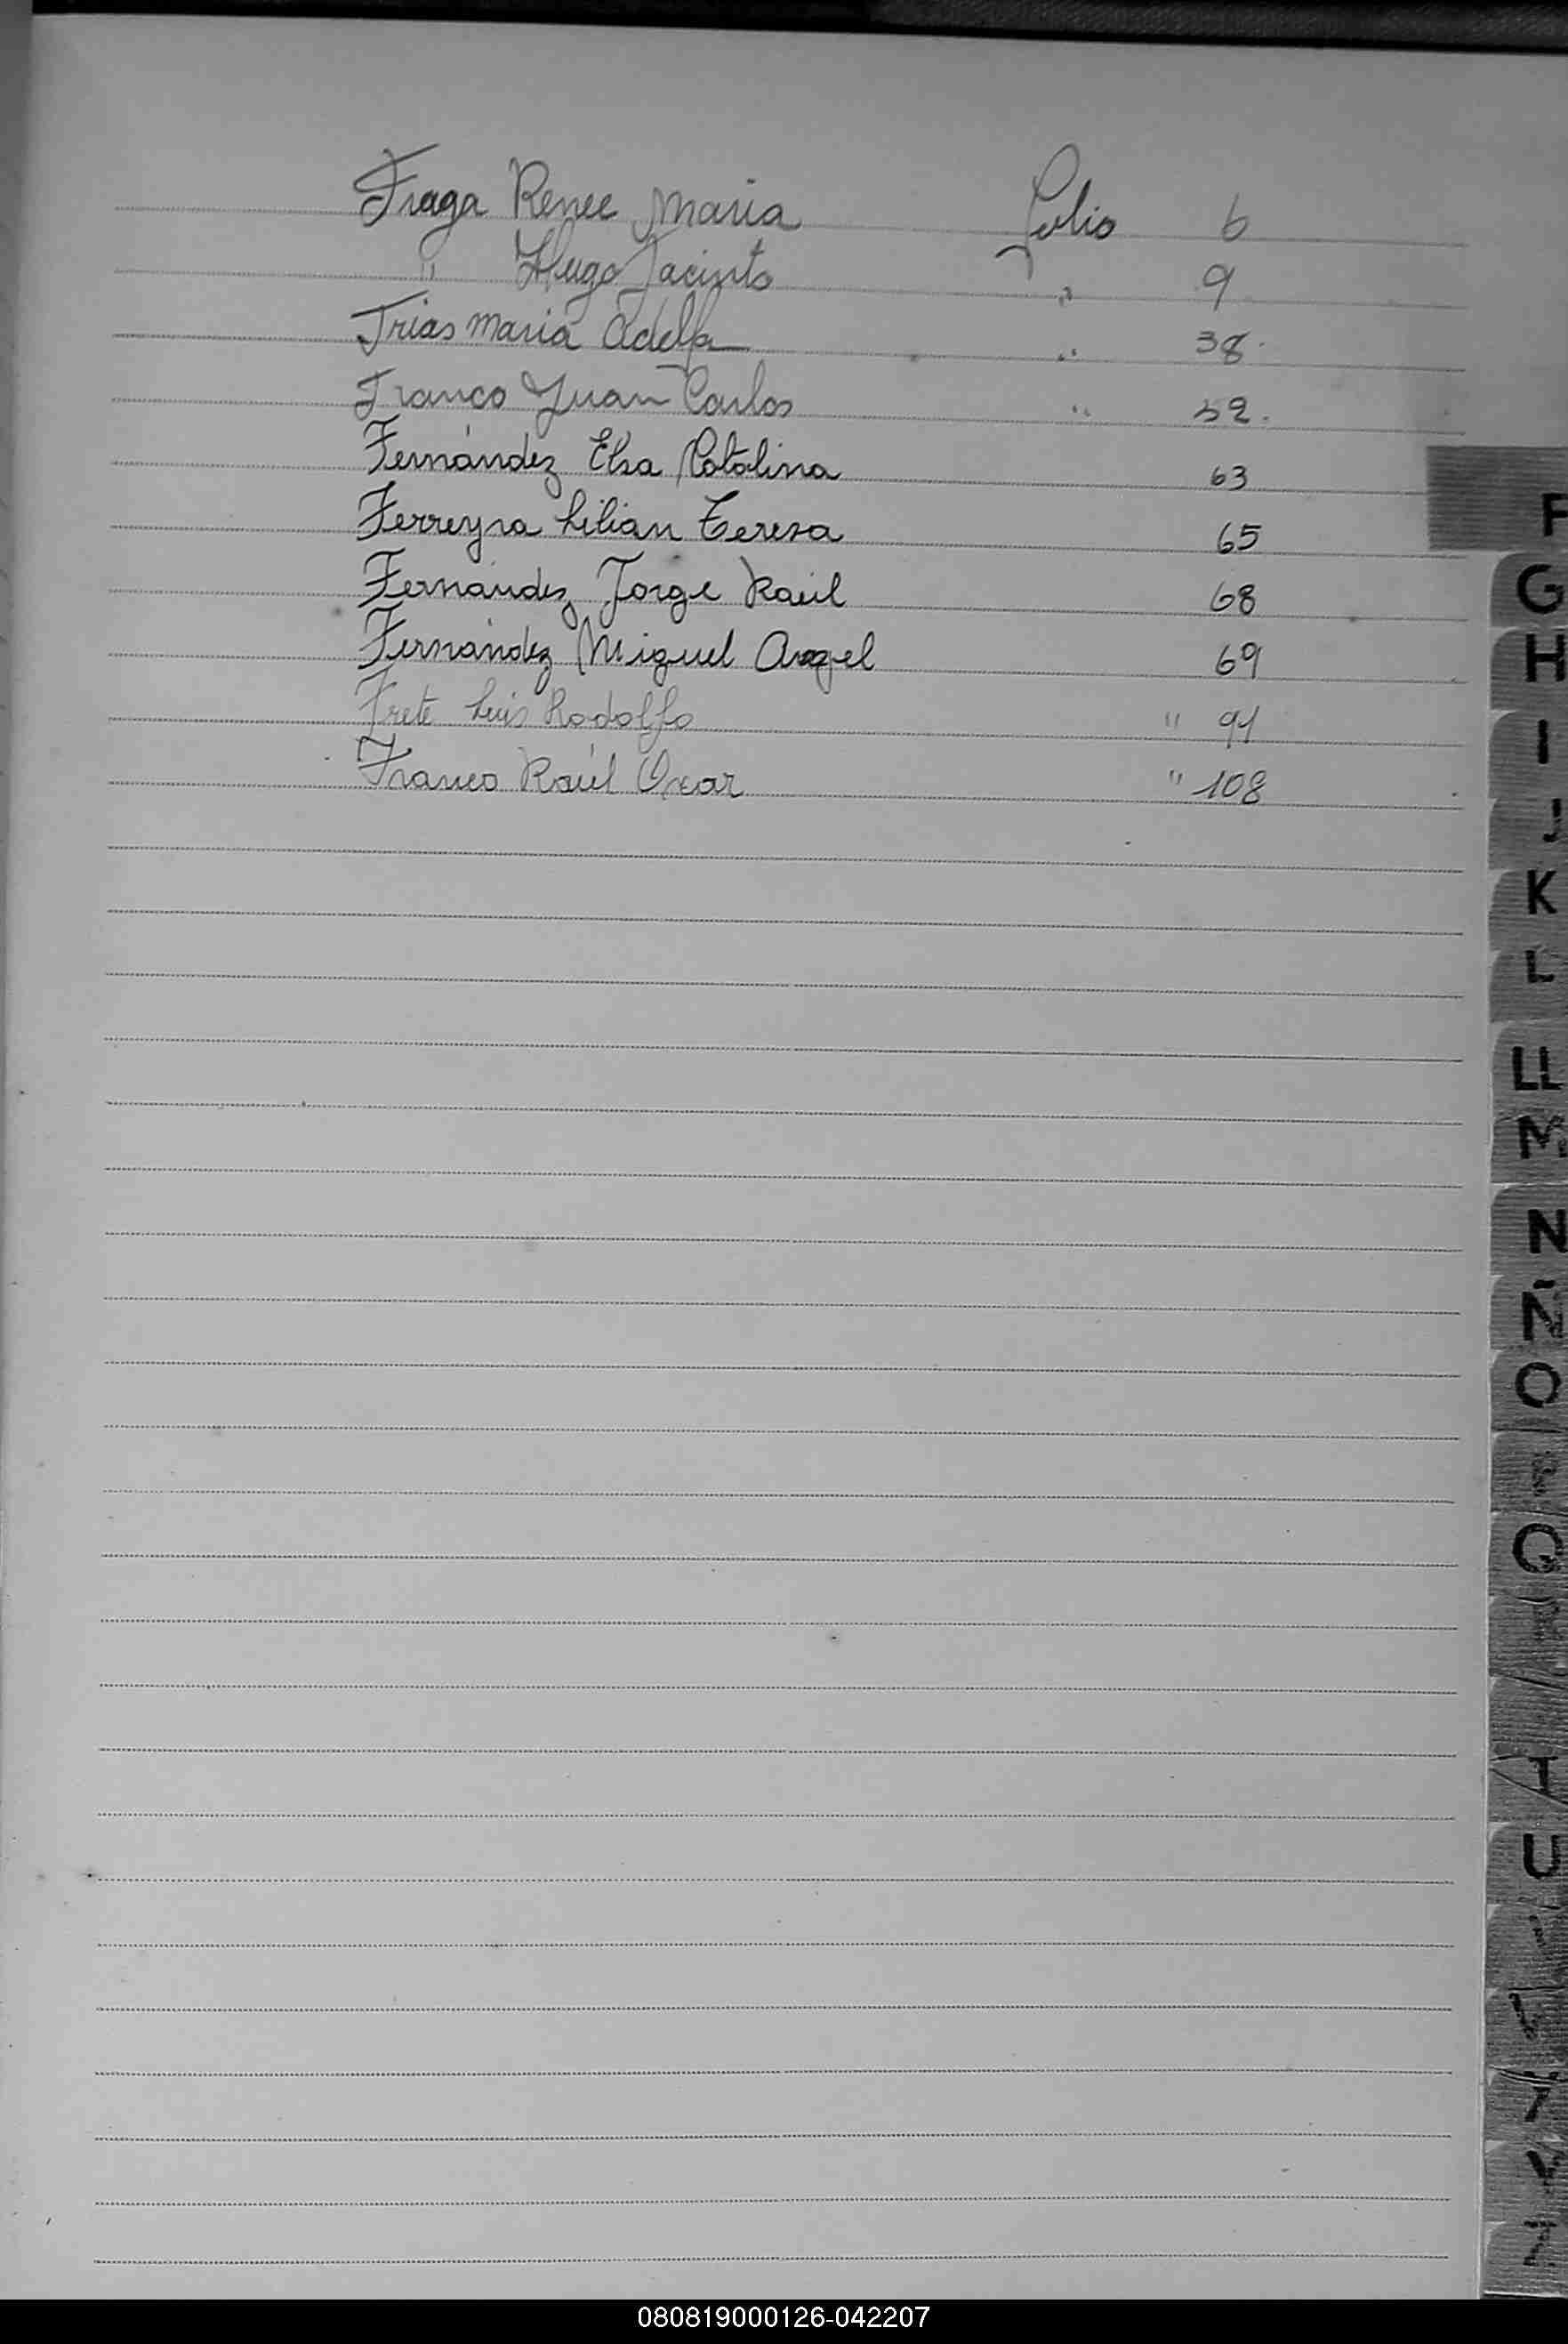 Fraga Renee Maria Folio 6
" Hugo Jacinto " 9
Frias Maria Adelfa " 38.
Franco Juan Carlos " 52.
Fernández Elsa Catalina 63
Ferreyra Lilian Teresa 65
Fernández Jorge Raúl 68
Fernández Miguel Angel 69
Frete Luis Rodolfo " 91
Franco Raúl Oscar " 108
F
G
H
I
J
K
L
LL
M
N
Ñ
O
Q
T
U
080819000126-042207